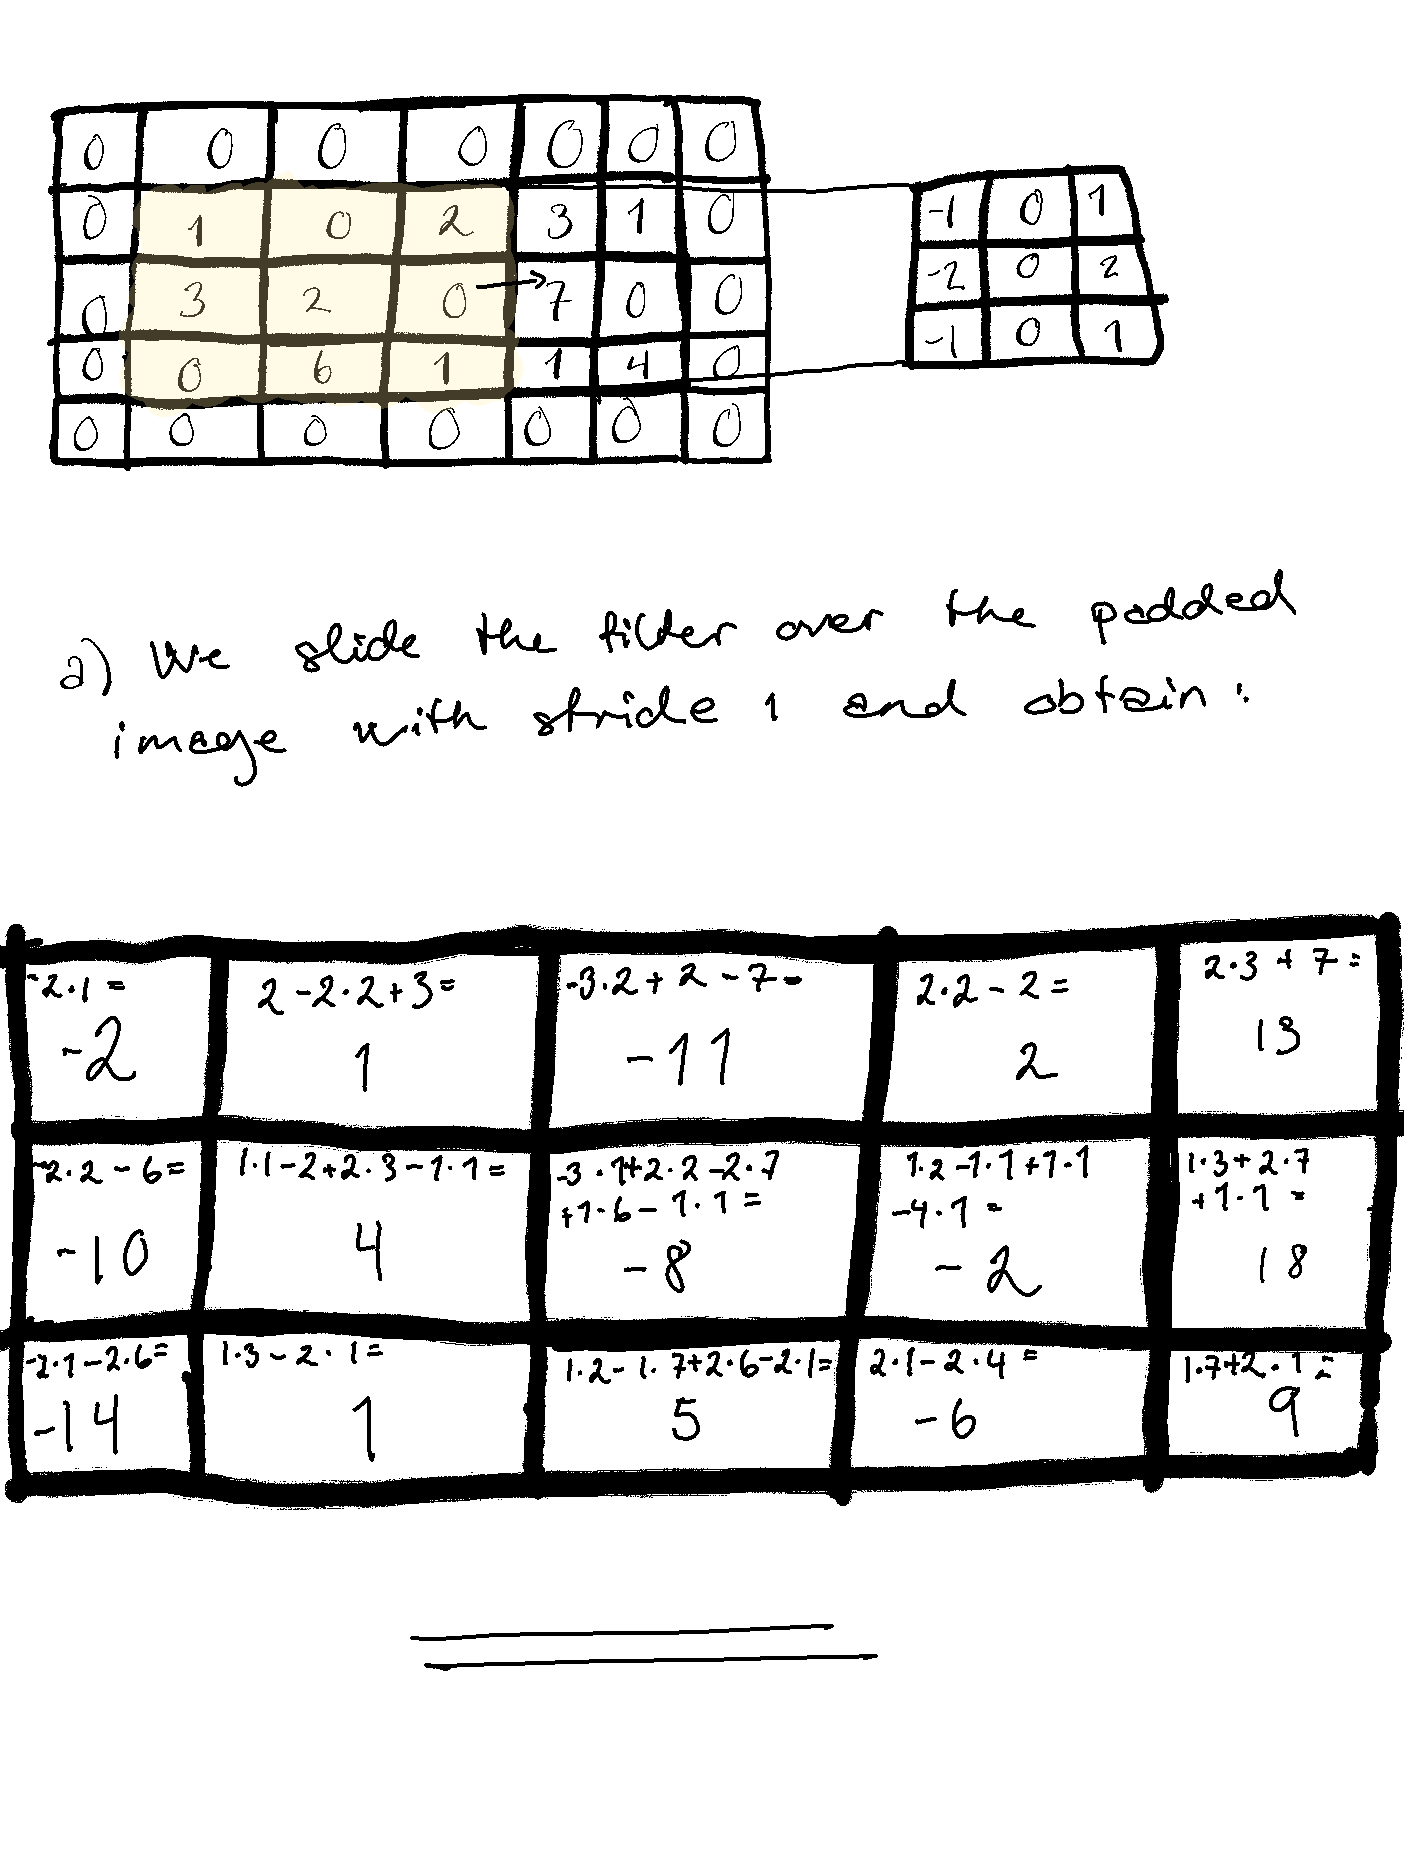 0 0 0 0 0 0 0
0 1 0 2 3 1 0
0 3 2 0 → 7 0 0
0 0 6 1 1 4 0
0 0 0 0 0 0 0
-1 0 1
-2 0 2
-1 0 1
a) We slide the filter over the padded
image with stride 1 and obtain:
-2·1= 2-2·2+3= -3·2+2-7= 2·2-2= 2·3+7=
-2 1 -11 2 13
-2·2-6= 1·1-2+2·3-1·1= -3·1+2·2-2·7 1·2-1·1+1·1 1·3+2·7
+1·6-1·1= -4·1= +1·1=
-10 4 -8 -2 18
-2·1-2·6= 1·3-2·1= 1·2-1·7+2·6-2·1= 2·1-2·4= 1·7+2·1=
-14 1 5 -6 9